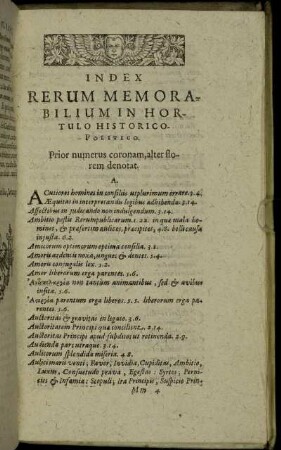 INDEX
RERUM MEMORA-
BILIUM IN HOR-
TULO HISTORICO-
POLITICO.
Prior numerus coronam, alter flo-
rem denotat.
A.
ACutiores homines in consiliis ut plurimum errare. 3.4.
Æquitas in interpretandis legibus adhibenda. 3.14.
Affectibus in judicando non indulgendum. 3.14.
Ambitio pestis Rerumpublicarum. 1.22. in qua mala ho-
mines, & præsertim aulicos, præcipitet, 4.8. belli causa
injusta. 6.2.
Amicorum optimorum optima consilia. 3.1.
Amoris ardentis noxa, ungues & dentes. 2.4.
Amoris conjugalis lex. 3.2.
Amor liberorum erga parentes. 3.6.
non tantum animantibus, sed & avibus
insita. 3.6.
parentum erga liberos. 3.5. liberorum erga pa-
rentes. 3.6.
Auctoritas & gravitas in legato. 3.6.
Auctoritatem Principi quæ concilient. 2.14.
Auctoritas Principis apud subditos retinenda. 2.9.
Audienda pars utraque. 3.14.
Aulicorum splendida miseria. 4.8.
Aulici maris venti, Favor, Invidia, Cupiditas, Ambitio,
Luxus, Consuetudo prava, Egestas: Syrtes, Perni-
cies & Infamia: Scopuli, Ira Principis, Suspicio Prin-
Mm 4